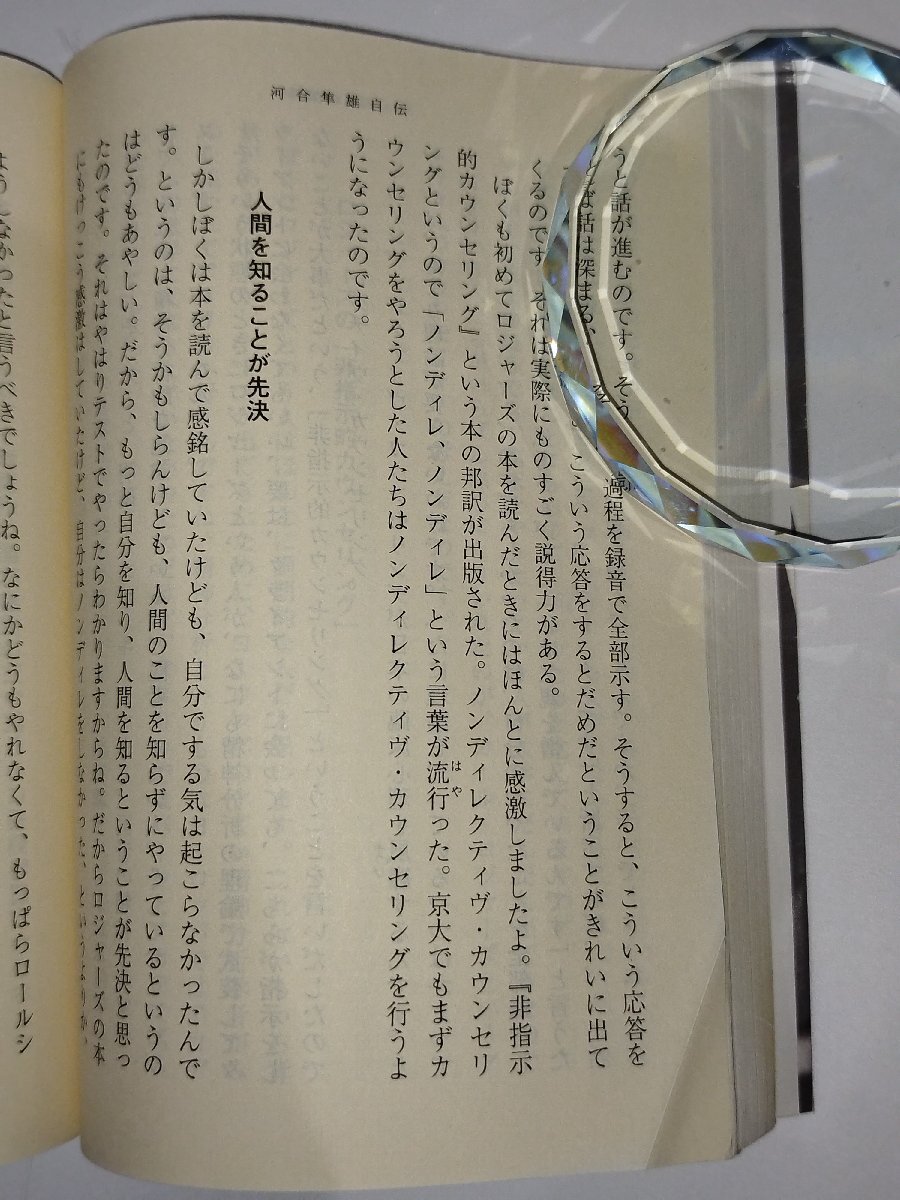 河合隼雄自伝
うと話が進むのです。そう過程を録音で全部示す。そうすると、こういう応答を
ば話は深まる、こういう応答をするとだめだということがきれいに出て
くるのです。それは実際にものすごく説得力がある。
ぼくも初めてロジャーズの本を読んだときにはほんとに感激しましたよ。『非指示
的カウンセリング』という本の邦訳が出版された。ノンディレクティヴ・カウンセリ
ングというので「ノンディレ、ノンディレ」という言葉が流行った。京大でもまずカ
はや
ウンセリングをやろうとした人たちはノンディレクティヴ・カウンセリングを行うよ
うになったのです。
人間を知ることが先決
しかしぼくは本を読んで感銘していたけども、自分でする気は起こらなかったんで
す。というのは、そうかもしらんけども、人間のことを知らずにやっているというの
はどうもあやしい。だから、もっと自分を知り、人間を知るということが先決と思っ
たのです。それはやはりテストでやったらわかりますからね。だからロジャーズの本
にもけっこう感激はしていたけど、自分はノンディレをしなかった、というよりか、
はうんなかったと言うべきでしょうね。なにかどうもやれなくて、もっぱらロールシ